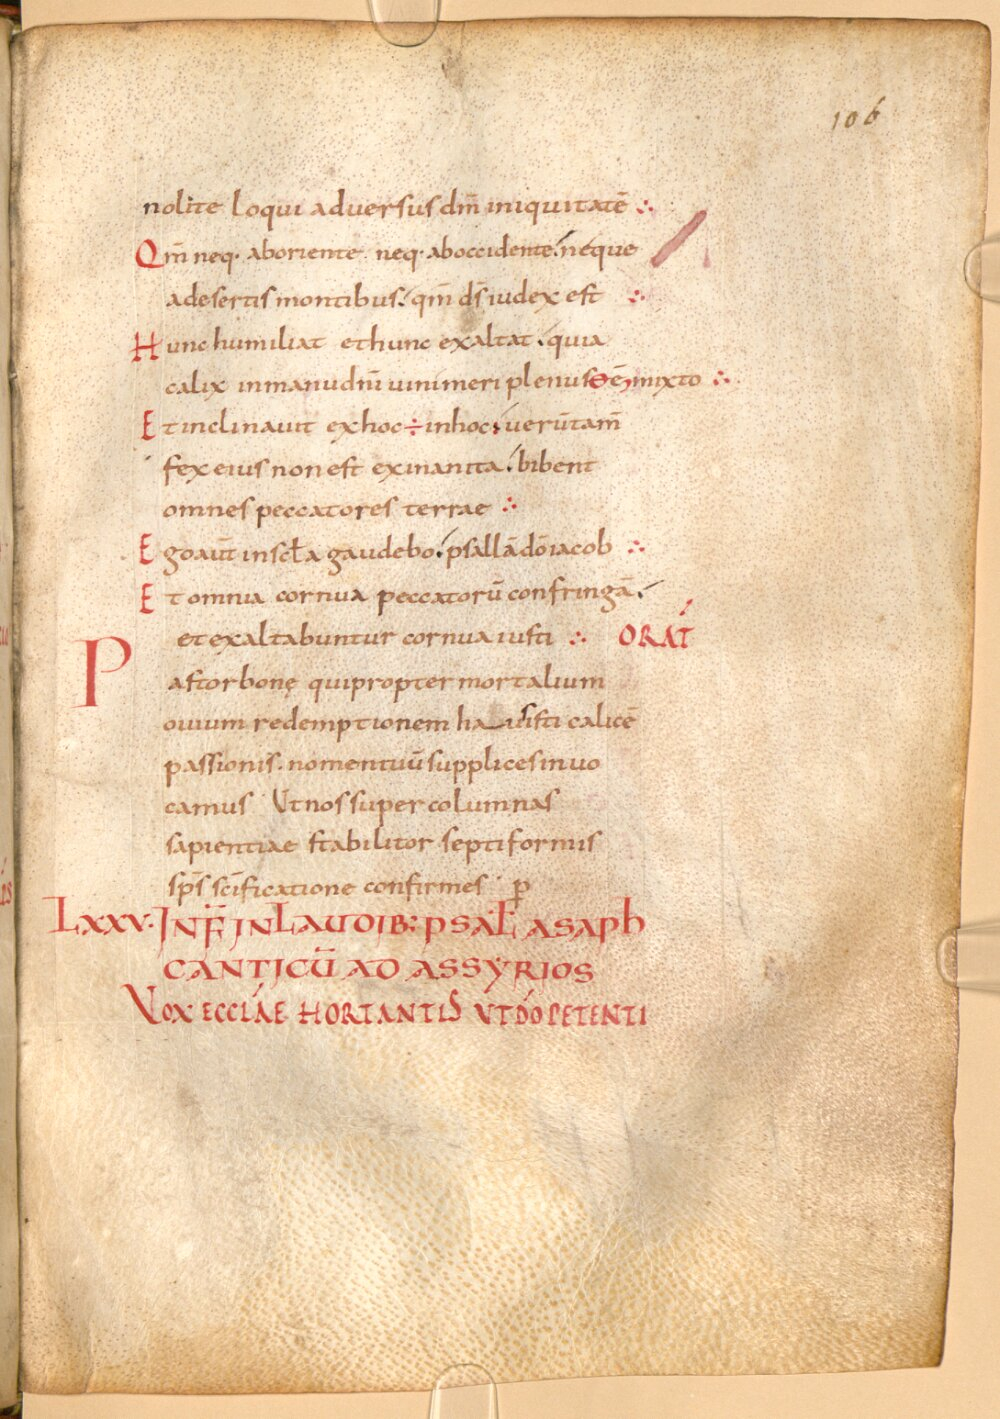 106
nolite loqui adversus dm̄ iniquitatē ჻
Qm̄ neq· aboriente neq· aboccidente neque
adesertis montibus qm̄ ds̄ iudex est ჻
Hunc humiliat et hunc exaltat quia
calix inmanu dnī vini meri plenus mixto ჻
Et inclinavit exhoc ÷ inhoc verūtam̄
fex eius non est exinanita bibent
omnes peccatores terrae ჻
Ego aut̄ in scl̄a gaudebo psallā dō iacob ჻
Et omnia cornua peccatorū confringā
et exaltabuntur cornua iusti ჻ ORAT̄
Pastor bonę qui propter mortalium
ovium redemptionem hausisti calicē
passionis· nomen tuū supplices invo
camus Ut nos super columnas
sapientiae stabilitor septiformis
sp̄s sc̄ificatione confirmes p̄
LXXV· IN F̄ IN LAUDIB: PSAL̄ ASAPH
CANTICŪ AD ASSYRIOS
VOX ECCLAE HORTANTIS UT DŌ PETENTI